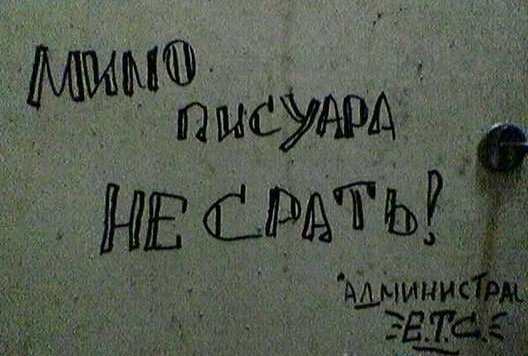 МИМО
ПИСУАРА
НЕ СРАТЬ!
"АДМИНИСТРАЦ
Е.Т.С.